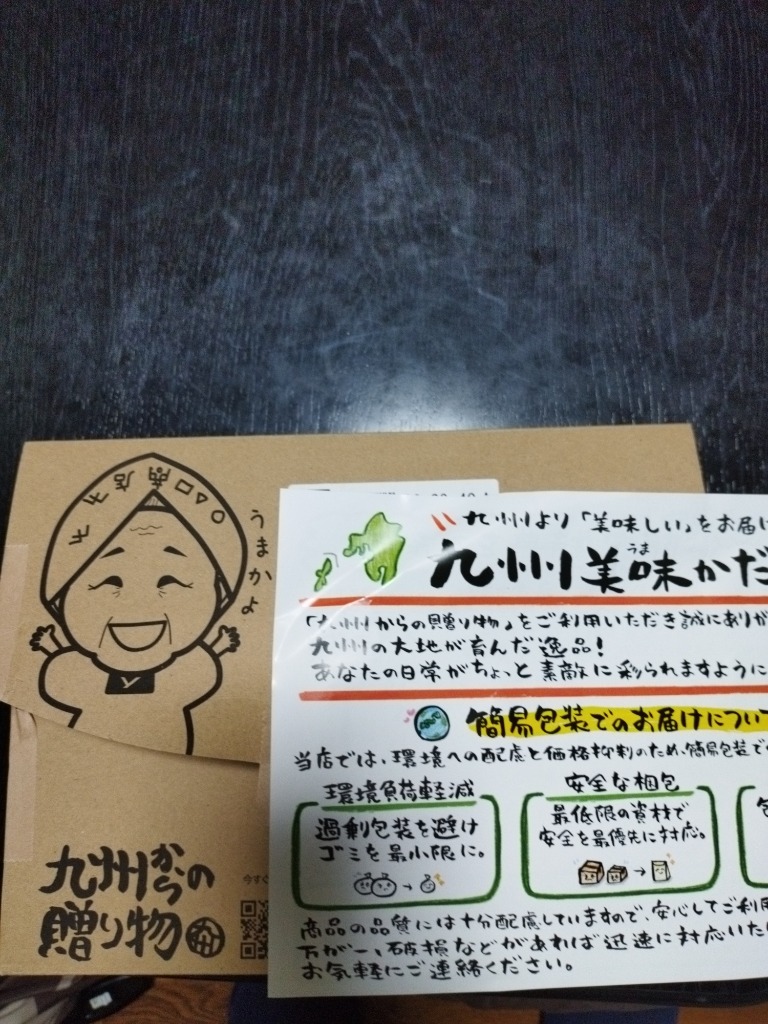 うまかよ
九州からの
贈り物
九州より「美味しい」をお届け
うま
九州美味かだ
「九州からの贈り物」をご利用いただき誠にありが
九州の大地が育んだ逸品！
あなたの日常がちょっと素敵に彩られますように
簡易包装でのお届けについ
当店では、環境への配慮と価格抑制のため、簡易包装で
環境負荷軽減
過剰包装を避け
ゴミを最小限に。
安全な梱包
最低限の資材で
安全を最優先に対応。
商品の品質には十分配慮していますので、安心してご利用
万が一、破損などがあれば迅速に対応いた
お気軽にご連絡ください。
今すぐ